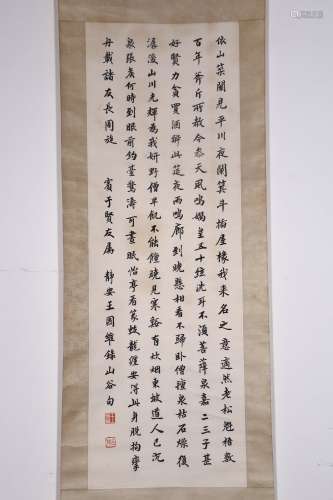 依山築閣見平川夜闌箕斗插屋椽我來名之意適然老松魁梧數
百年斧斤所赦今參天風鳴媧皇五十弦洗耳不須菩薩泉嘉二三子甚
好賢力貧買酒醉此筵夜雨鳴廊到曉懸相看不歸臥僧氈泉枯石燥復
潺湲山川光輝為我妍野僧早飢不能饘曉見寒谿有炊烟東坡道人已沉
泉張侯何時到眼前釣臺驚濤可晝眠怡亭看篆蛟龍纏安得此身脫拘攣
舟載諸友長周旋 賓于賢友屬 靜安王國維錄山谷句